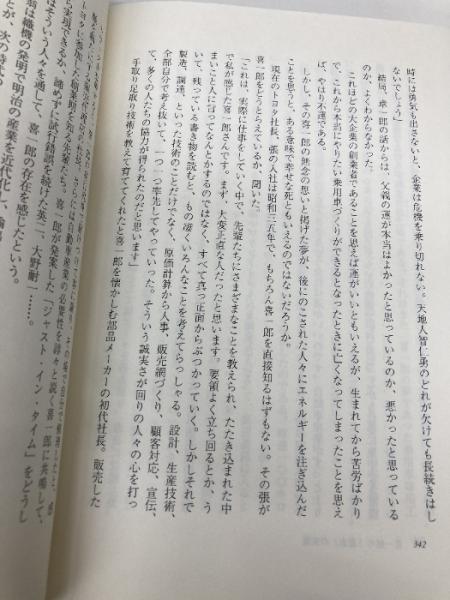 時には勇気も出さないと、企業は危機を乗り切れない。天地人智仁勇のどれが欠けても長続きはし
ないでしょう」
結局、章一郎の話からは、父親の運が本当はよかったと思っているのか、悪かったと思っている
のか、よくわからなかった。
これほどの大企業の創業者であることを思えば運がいいともいえるが、生まれてから苦労ばかり
で、これから本当にやりたい乗用車づくりができるとなったときに亡くなってしまったことを思え
ば、やはり不運である。
しかし、その喜一郎の無念の思いと掲げた夢が、後にのこされた人々にエネルギーを注ぎ込んだ
ことを思うと、ある意味で幸せな死ともいえるのではないだろうか。
現在のトヨタ社長、張の入社は昭和三五年で、もちろん喜一郎を直接知るはずもない。その張が
喜一郎をどうとらえているか、聞いた。
「これは、実際に仕事をしていく中で、先輩たちにさまざまなことを教えられ、たたき込まれた中
で私が感じた喜一郎さんです。まず、大変正直な人だったと思います。要領よく立ち回るとか、う
まいこと人に言ってなんとかするのではなく、すべて真っ正面からぶつかっていく。しかしそれで
いて、残っている書き物を読むと、もの凄くいろんなことを考えてらっしゃる。設計、生産技術、
製造、調達、といった技術のことだけでなく、原価計算から人事、販売網づくり、顧客対応、宣伝、
全部自分で考え抜いて、一つ一つ率先してやっていった。そういう誠実さが回りの人々の心を打っ
て、多くの人たちの協力が得られたのだと思います」
手取り足取り技術を教えて育ててくれたと喜一郎を懐かしむ部品メーカーの初代社長。販売した
ら実現できるか、諦めずに試行錯誤を続けた英二、大野耐一……。
そういう人々を通して、喜一郎の存在を感じたという。
翁は織機の発明で明治の産業を近代化し、
342